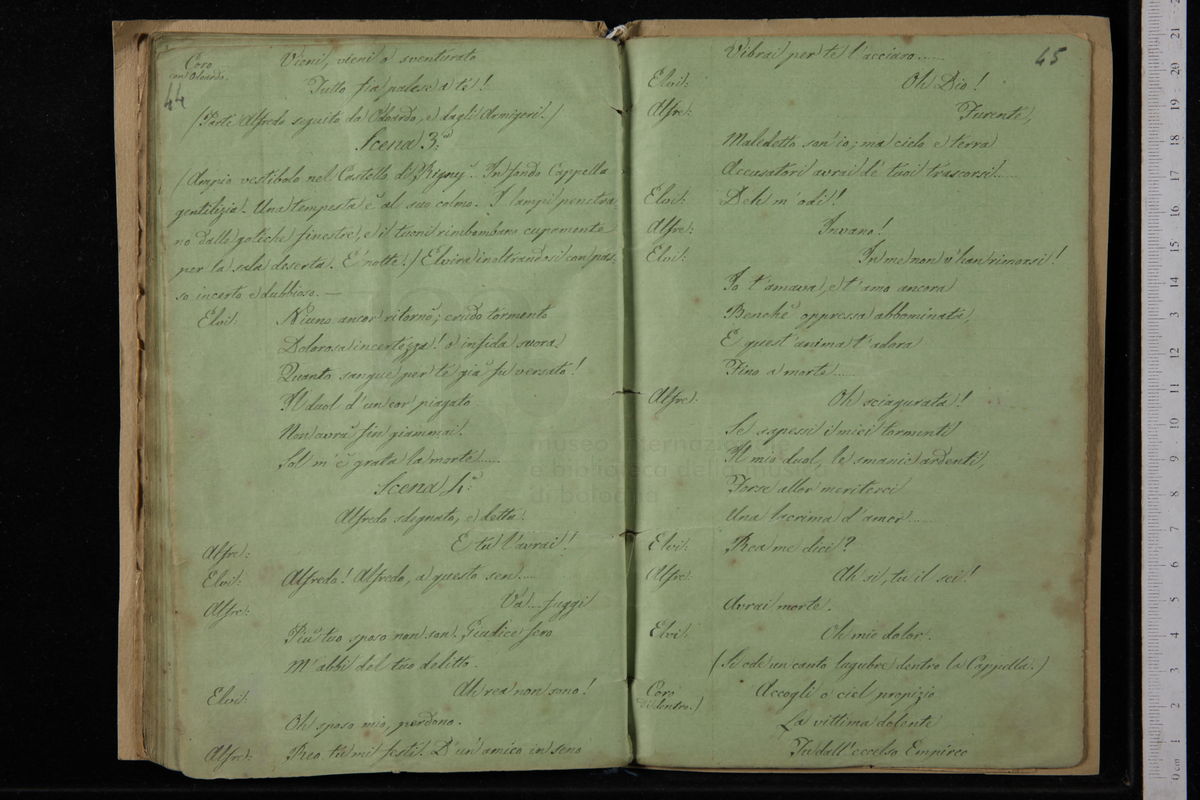 44
Coro
con Odoardo.
Vieni, vieni o sventurato
Tutto fia palese a te!
(Parte Alfredo seguito da Odoardo, e dagli Armigeri!)
Scena 3.a
(Ampio vestibolo nel Castello di Rigny. In fondo Cappella
gentilizia. Una tempesta è al suo colmo. I lampi penetra
no dalle gotiche finestre, e il tuoni rimbombano cupamente
per la sala deserta. È notte.) Elvira inoltrandosi con pas:
so incerto e dubbioso. —
Elvi: Niuno ancor ritornò; crudo tormento
Dolorosa incertezza! o infida suora
Quanto sangue per te già fu versato!
Il duol d'un cor piagato
Non avrà fin giammai!
Sol m'è grata la morte.....
Scena 4.a
Alfredo sdegnato, e detta.
Alfre: E tu l'avrai!
Elvi: Alfredo! Alfredo, a questo sen.....
Alfre: Va.... fuggi
Più tuo sposo non son. Giudice fero
M'abbi del tuo delitto.
Elvi: Ah rea non sono!
Oh sposo mio, perdono.
Alfre: Rea tu mi festi! D'un amico in seno
45
Vibrai per te l'acciaro......
Elvi: Oh Dio!
Alfre: Furente,
Maledetto son io; ma cielo e terra
Accusatori avrai de' tuoi trascorsi.....
Elvi: Deh m'odi!
Alfre: Invano!
Elvi: In me non v'han rimorsi!
Io t'amava, e t'amo ancora
Benchè oppressa abbominata,
E quest'anima t'adora
Fino a morte.....
Alfre: Oh sciagurata!
Se sapessi i miei tormenti
Il mio duol, le smanie ardenti,
Forse allor meriterei
Una lacrima d'amor.....
Elvi: Rea me dici?
Alfre: Ah si, tu il sei!
Avrai morte.
Elvi: Oh mio dolor.
(Si ode un canto lugubre dentro la Cappella.)
Coro
di dentro.)
Accogli o ciel propizio
La vittima dolente
Tu dall'eccelso Empireo
museo internazionale
e biblioteca della musica
di bologna
0 cm 1 2 3 4 5 6 7 8 9 10 11 12 13 14 15 16 17 18 19 20 21